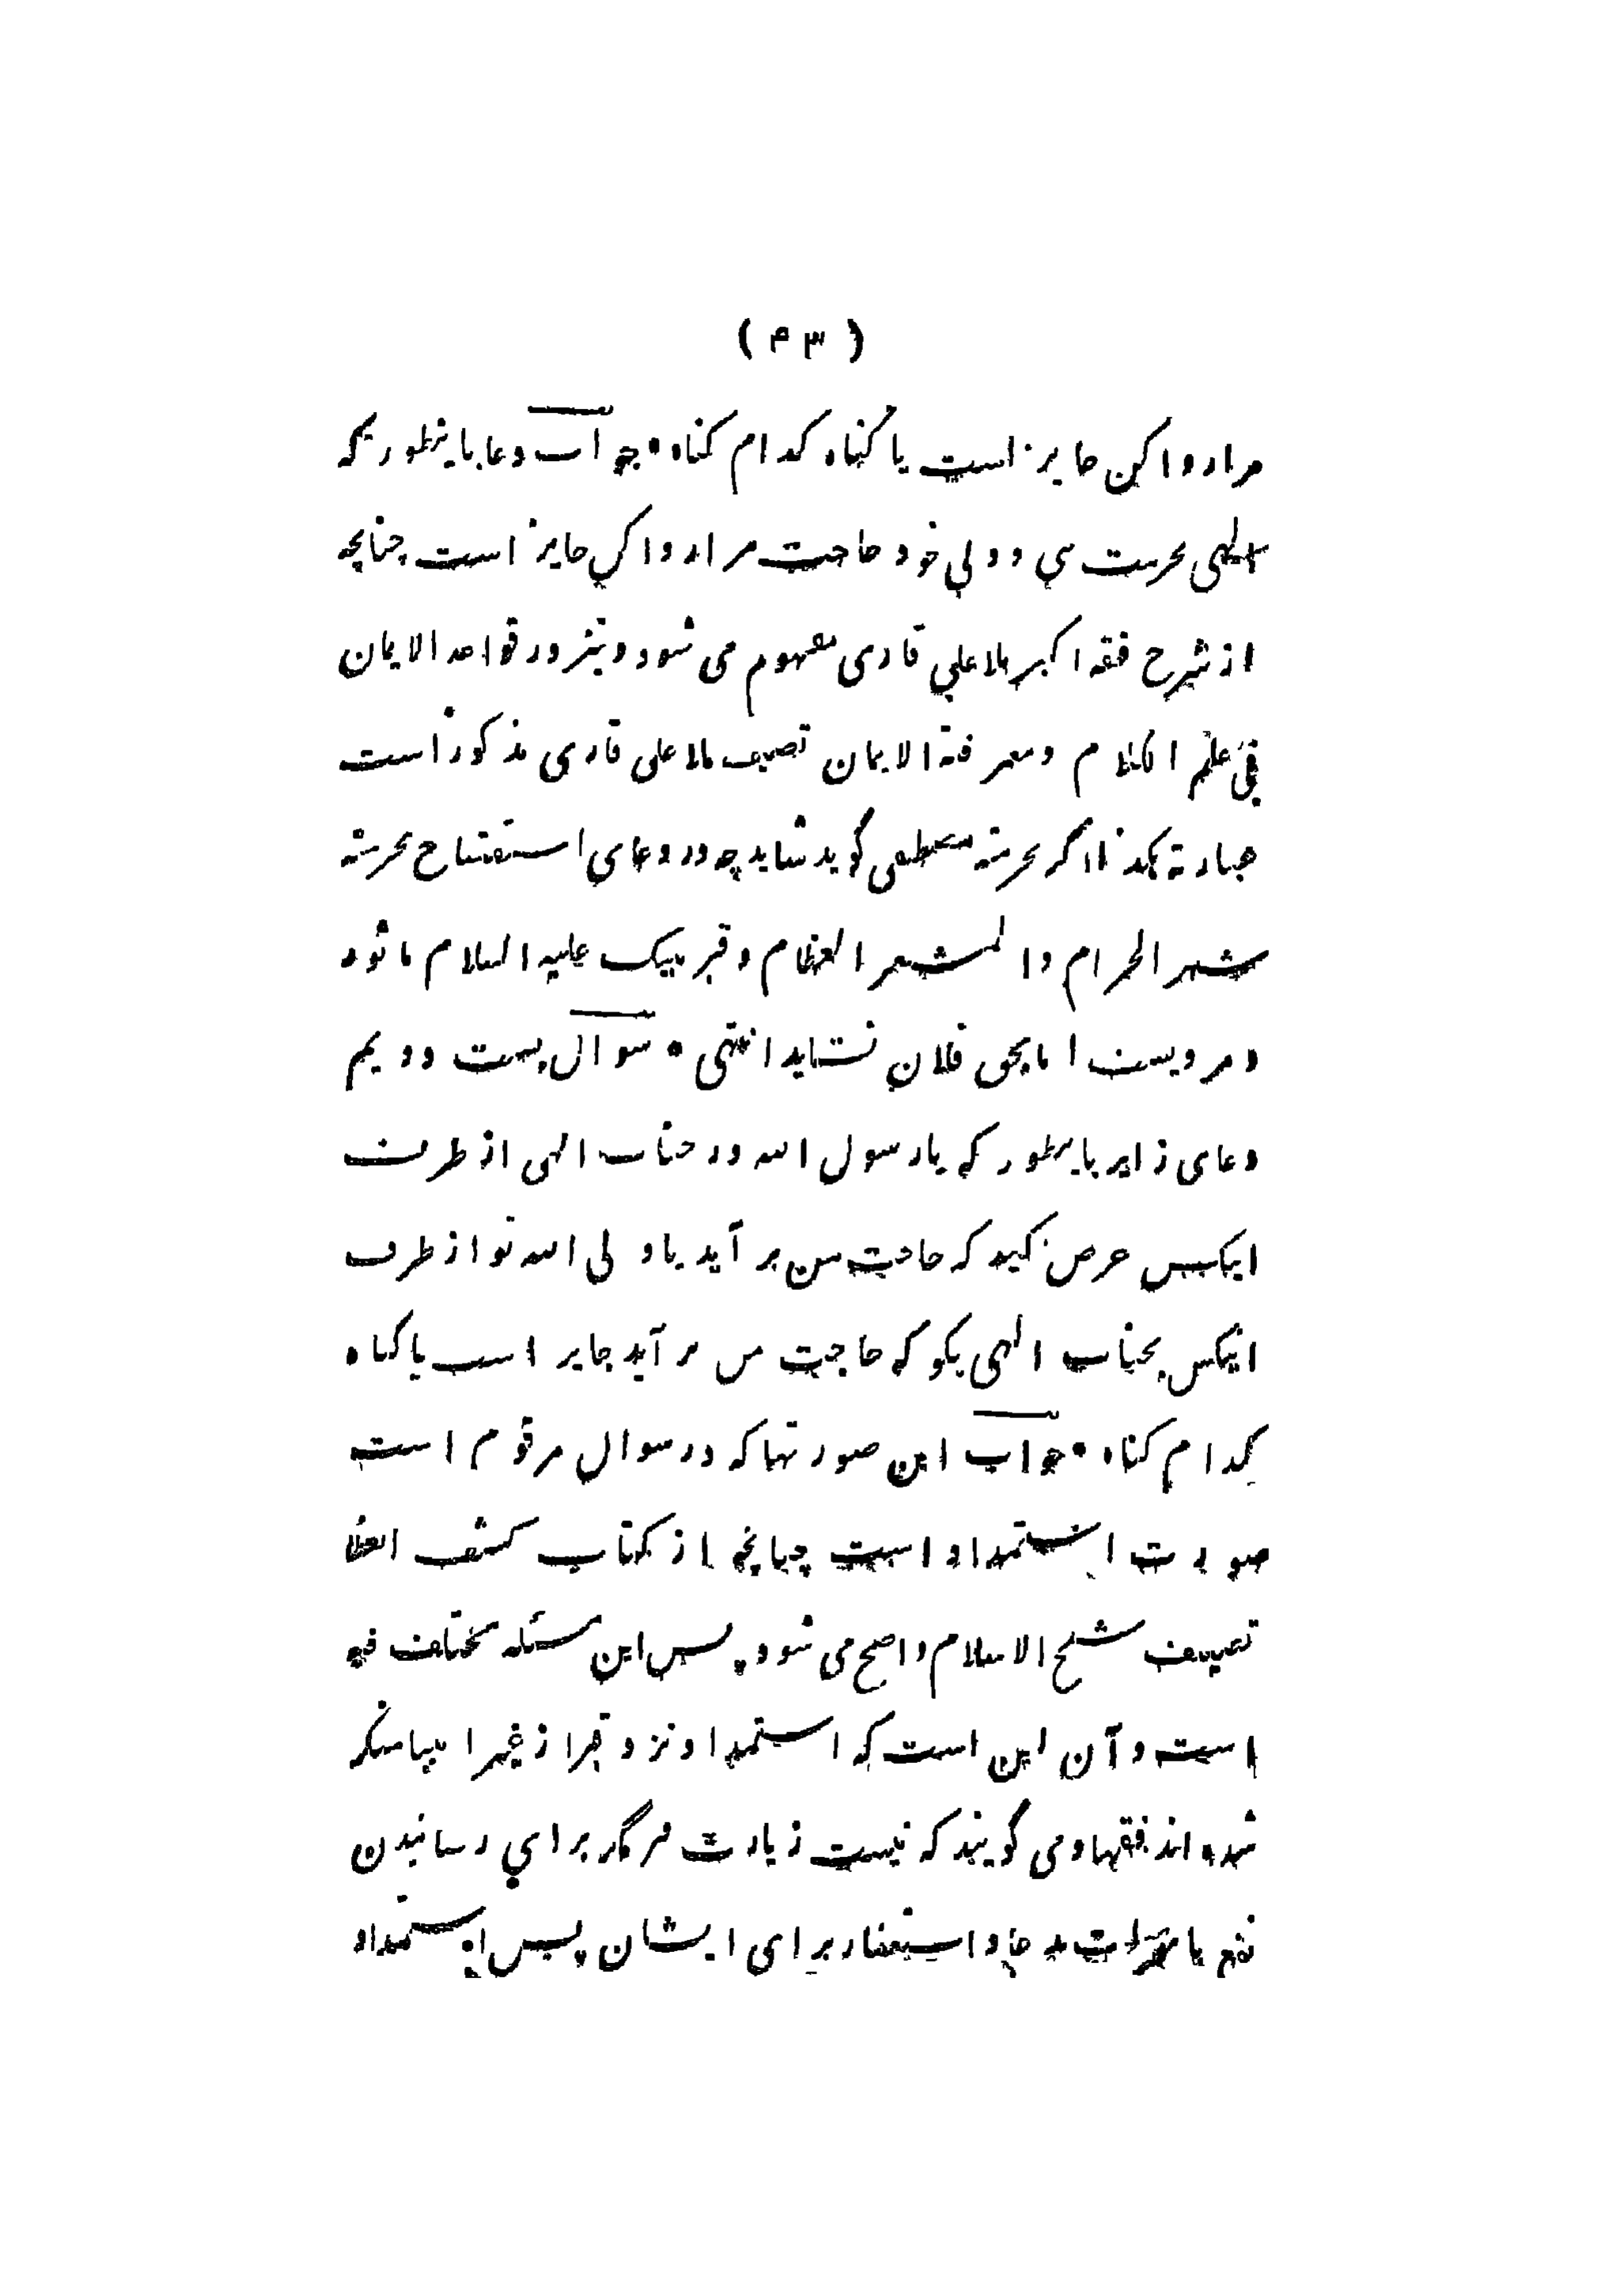 ( ۳۴ )
مرا روا کن جایز است یا گناه کدام گناه • جواب دعا باینطور یکه
الهی بحرمت نبی و ولی خود حاجت مرا روا کن جایز است چنانچه
از شرح فقه اکبر ملا علی قاری مفهوم می شود و نیز در قواعد الایمان
فی علم الکلام و معرفة الایمان تصنیف ملا علی قاری مذکور است
عبارته هکذا اگر بحرمة مصطفی گوید شاید چه در دعای استفتاح بحرمة
شهر الحرام و المشعر العظام و قبر نبیک علیه السلام ماثور
و مرویست اما بحق فلان نشاید انتهی • سوال بست دویم
دعای زایر باینطور که یا رسول الله در جناب الهی از طرف
اینکس عرض کنید که حاجت من بر آید یا ولی الله تو از طرف
اینکس بجناب الهی بگو که حاجت من بر آید جایز است یا گناه
کدام گناه • جواب این صورتها که در سوال مرقوم است
صورت استمداد است چنانچه از کتاب کشف الغطا
تصنیف شیخ الاسلام واضح می شود پس این مسئله مختلف فیه
است و آن این است که استمداد نزد قبر از غیر انبیا منکر
شده اند فقها و می گویند که نیست زیارت مگر برای رسانیدن
نفع باموات بدعا و استغفار برای ایشان پس استمداد